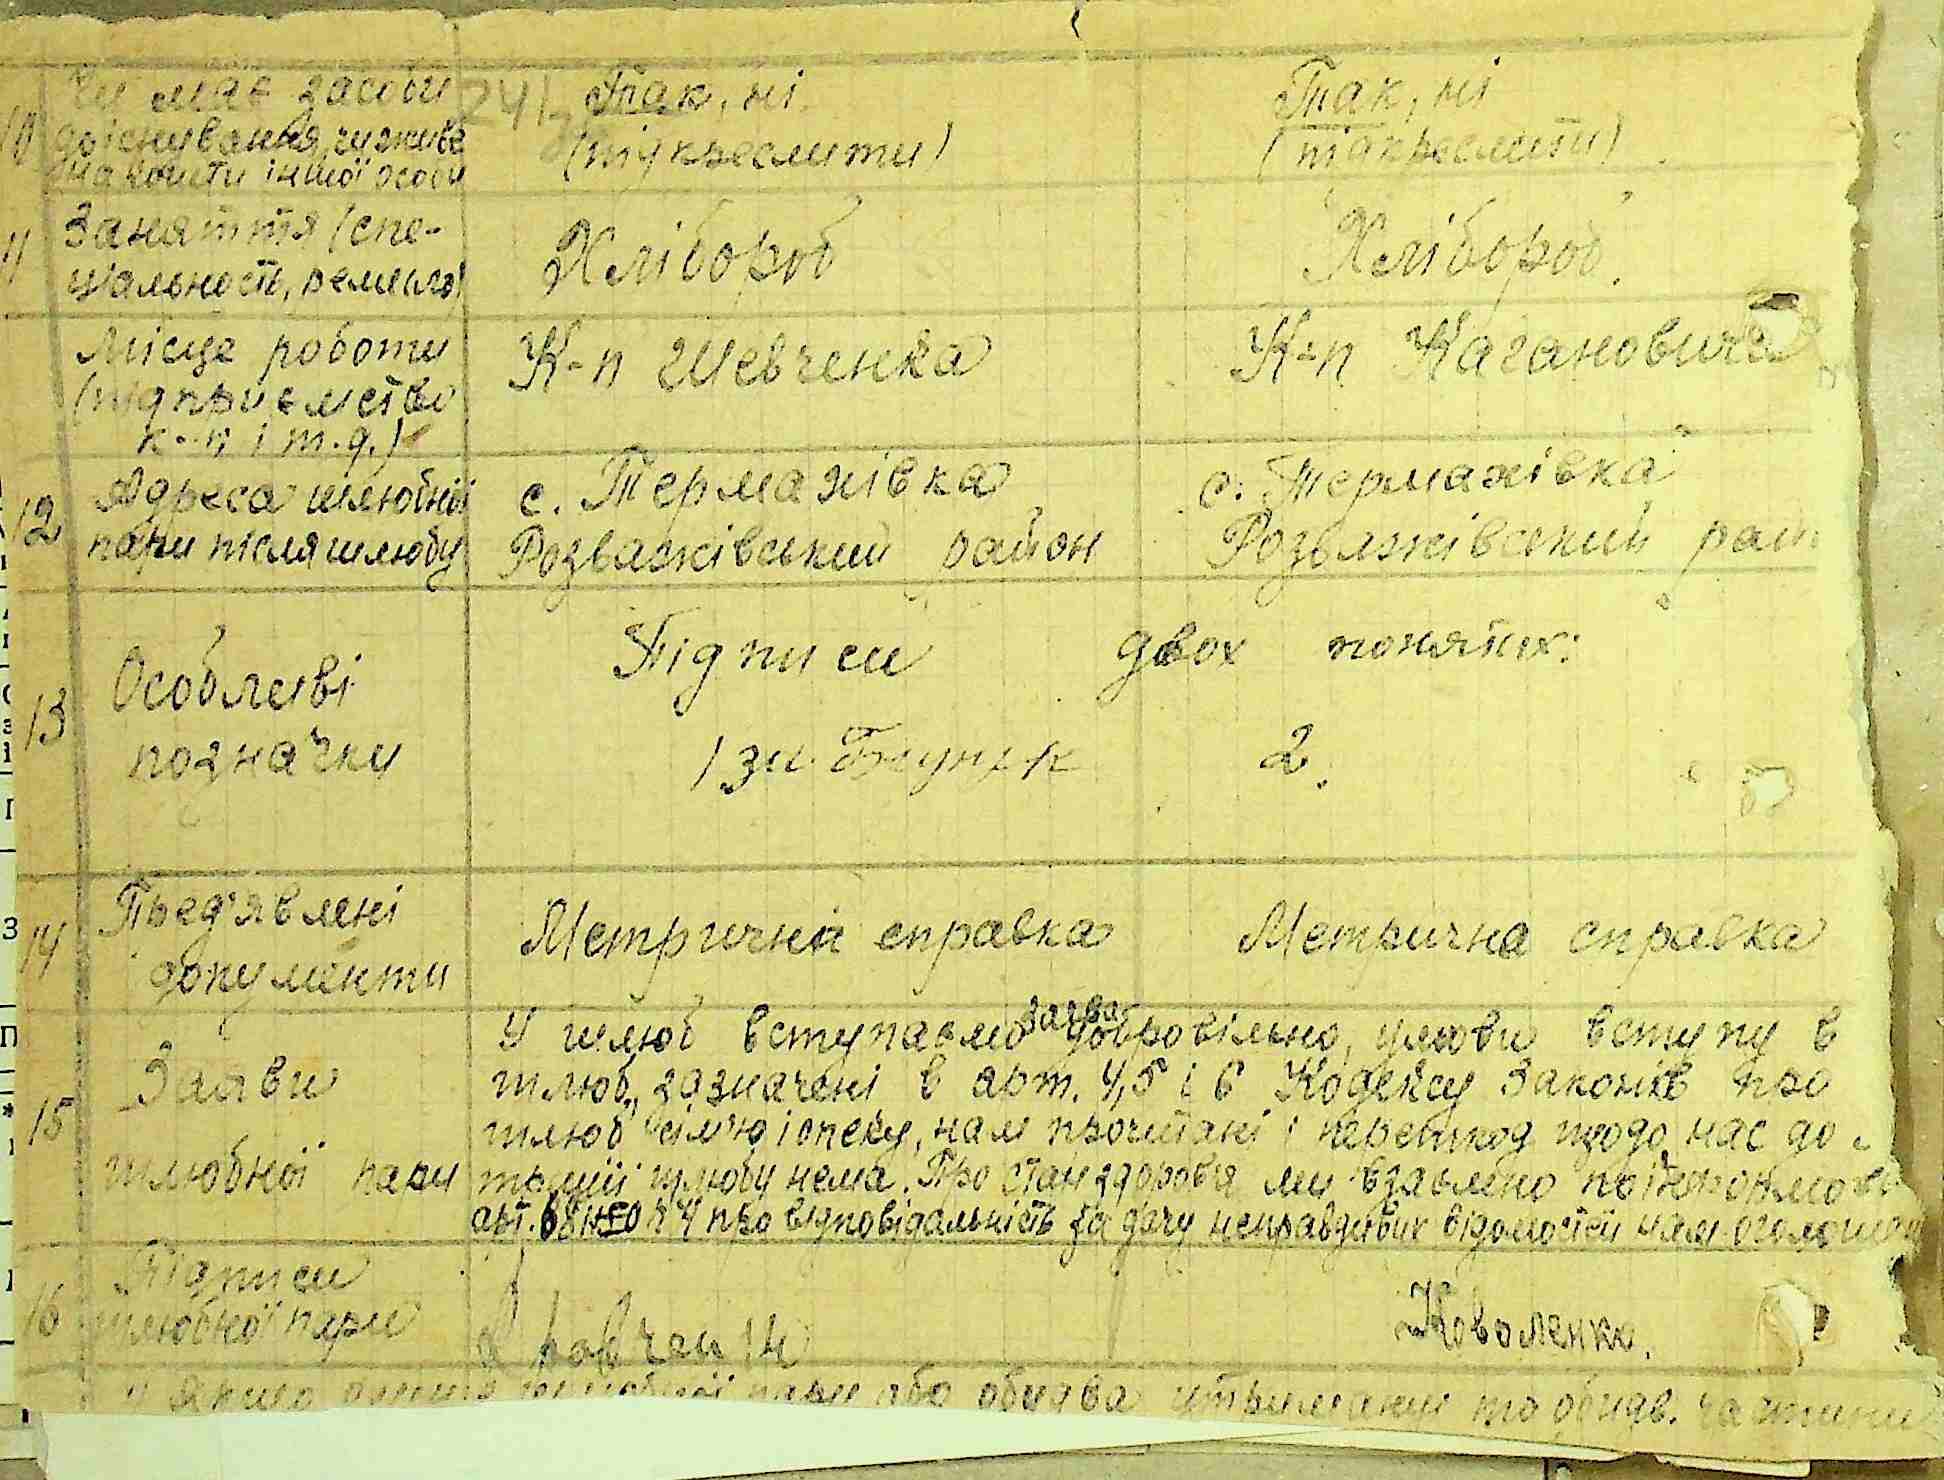 10 Чи має засоби
до існування, чи живе
на кошти іншої особи
Так, ні
(підкреслити)
Так, ні
(підкреслити)
11 Заняття (спе-
ціальность, ремесло)
Хлібороб
Хлібороб.
Місце роботи
(підприємство
к-п і т.д.)
К-п Шевченка
К-п Кагановича
12 Адреса шлюбної
пари після шлюбу
с. Термахівка
Розважівський район
с. Термахівка
Розважівський рай
13 Особливі
позначки
Підписи двох понятих:
1 2.
14 Пред'явлені
документи
Метрична справка
Метрична справка
15 Заяви
шлюбної пари
У шлюб вступаємо добровільно, умови вступу в
шлюб, зазначені в арт. 4, 5 і 6 Кодексу Законів про
шлюб сім'ю і опеку, нам прочитані і перешкод щодо нас до
шлюбу нема. Про стан здоров'я ми взаємно
арт. про відповідальність за дачу неправдивих відомостей нам
16 Підписи
шлюбної пари
Коваленко.
Якщо пари або обидва то обидв. частини